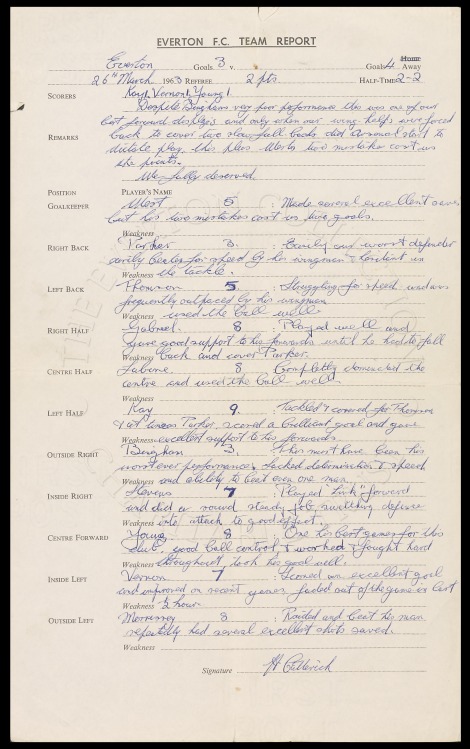 EVERTON F.C. TEAM REPORT
Everton Goals 3 v. Goals 4 Home Away
26th March 1963 REFEREE 2 pts HALF-TIME 2-2
SCORERS Kay 1 Vernon 1 Young 1
Despite Binghams very poor performance this was one of our
best forward displays and only when our wing halfs were forced
REMARKS back to cover two slow full backs did Arsenal start to
dictate play, this plus Wests two mistakes cost us
the points.
We fully deserved.
POSITION PLAYER'S NAME
GOALKEEPER West 5 : Made several excellent saves
but his two mistakes cost us two goals.
Weakness
RIGHT BACK Parker 3. : Easily our worst defender
easily beaten for speed by his wingman + hesitant in
Weakness the tackle.
LEFT BACK Thomson 5 : Struggling for speed and was
frequently outpaced by his wingman
Weakness used the ball well
RIGHT HALF Gabriel 8 : Played well and
gave good support to his forwards until he had to fall
Weakness back and cover Parker.
CENTRE HALF Labone 8 : Completly dominated the
centre and used the ball well
Weakness
LEFT HALF Kay 9. : Tackled & covered for Thomson
scored a brilliant goal and gave
Weakness excellent support to his forwards
OUTSIDE RIGHT Bingham 3. : This must have been his
worst ever performance, lacked determination & speed
Weakness and ability to beat even one man.
INSIDE RIGHT Stevens 7 : Played "Link" forward
and did a sound steady job, switching defence
Weakness into attack to good effect.
CENTRE FORWARD Young 8 : One his best games for this
club, good ball control, & worked & fought hard
Weakness throughout, took his goal well.
INSIDE LEFT Vernon 7 : Scored an excellent goal
and improved on recent games faded out of the game in last
Weakness ½ hour.
OUTSIDE LEFT Morrissey 8 : Raided and beat his man
repeatedly had several excellent shots saved.
Weakness
Signature H Catterick